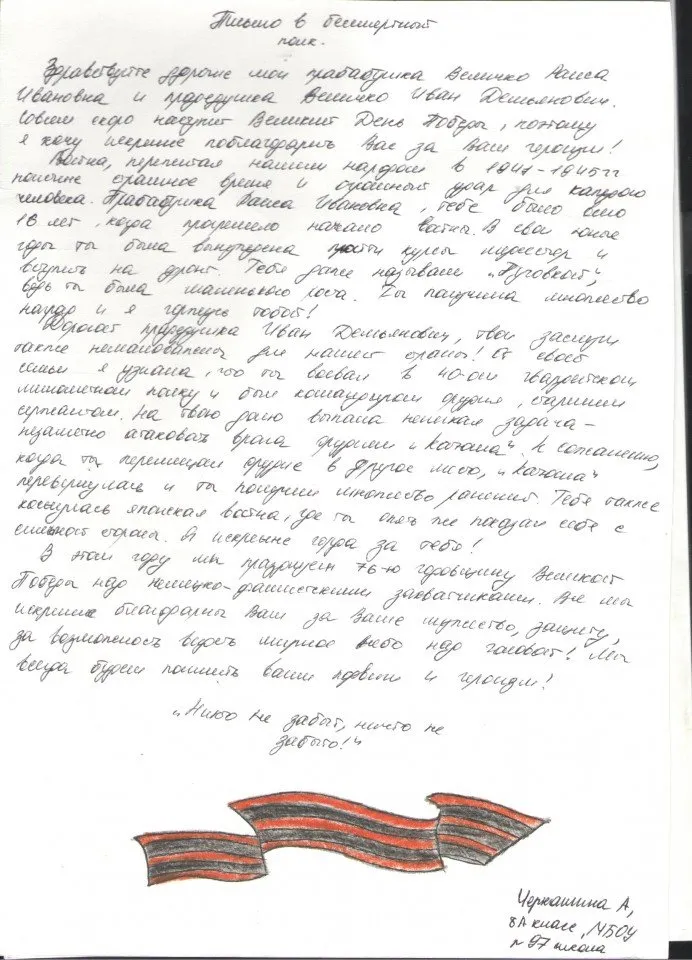 Письмо в бессмертный
полк.
Здравствуйте дорогие мои прабабушка Величко Раиса
Ивановна и прадедушка Величко Иван Демьянович.
Совсем скоро наступит Великий День Победы, поэтому
я хочу искренне поблагодарить Вас за Ваш героизм!
Война, перепитая нашим народом в 1941-1945 гг
поистине страшное время и страшный удар для каждого
человека. Прабабушка Раиса Ивановна, тебе было всего
16 лет, когда произошло начало войны. В свои юные
годы ты была вынуждена пройти курсы медсестер и
вступить на фронт. Тебя даже называли „Пуговкой“,
ведь ты была маленького роста. Ты получила множество
наград и я горжусь тобой!
Дорогой прадедушка Иван Демьянович, твои заслуги
также немаловажны для нашей страны! От своей
семьи я узнала, что ты воевал в 40-ом гвардейском
миномётном полку и был командиром орудия, старшим
сержантом. На твою долю выпала нелегкая задача -
незаметно атаковать врага орудием „Катюша“. К сожалению,
когда ты перемещал орудие в другое место, „Катюша“
перевернулась и ты получил множество ранений. Тебя также
коснулась японская война, где ты опять же показал себя с
сильной стороны. Я искренне горда за тебя!
В этом году мы празднуем 76-ю годовщину Великой
Победы над немецко-фашистскими захватчиками. Все мы
искренне благодарны Вам за Ваше мужество, защиту,
за возможность видеть мирное небо над головой! Мы
всегда будем помнить ваши подвиги и героизм!
„Никто не забыт, ничто не
забыто!“
Черкашина А,
8А класс, МБОУ
№97 школа